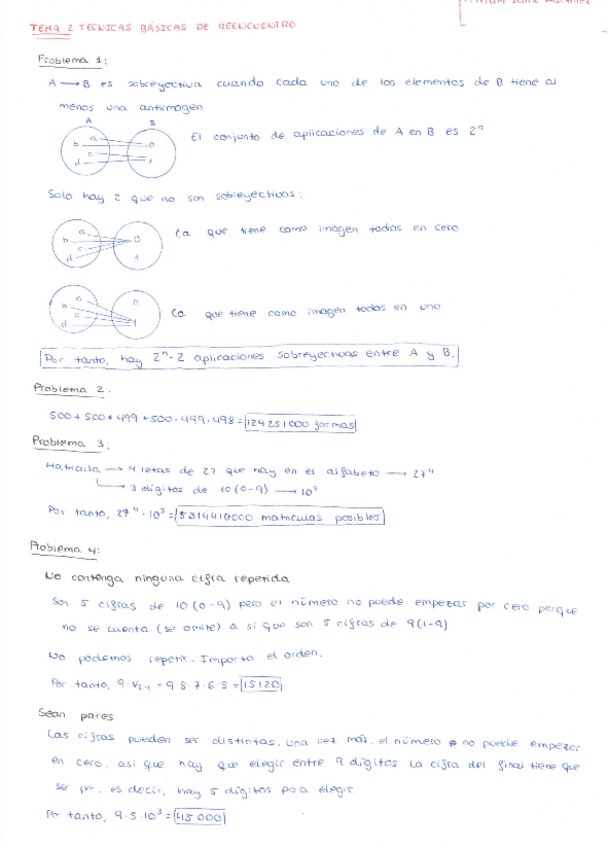 TEMA 2 TECNICAS BÁSICAS DE REENCUENTRO
Problema 1:
A → B es sobreyectiva cuando cada uno de los elementos de B tiene al
menos una antimagen
A B
a
b
c
d
0
1
El conjunto de aplicaciones de A en B es 2^n
Solo hay 2 que no son sobreyectivas:
a
b
c
d
0
1
La que tiene como imagen todas en cero
a
b
c
d
0
1
La que tiene como imagen todos en uno
Por tanto, hay 2^n-2 aplicaciones sobreyectivas entre A y B.
Problema 2:
500 + 500 · 499 + 500 · 499 · 498 = 124251000 formas
Problema 3:
Matricula → 4 letras de 27 que hay en el alfabeto → 27^4
→ 3 dígitos de 10 (0-9) → 10^3
Por tanto, 27^4 · 10^3 = 5314410000 matriculas posibles
Problema 4:
No contenga ninguna cifra repetida
Son 5 cifras de 10 (0-9) pero el número no puede empezar por cero porque
no se cuenta (se omite) a si que son 5 cifras de 9 (1-9)
No podemos repetir. Importa el orden.
Por tanto, = 9·8·7·6·5 = 15120
Sean pares
Las cifras pueden ser distintas. Una vez más, el número no puede empezar
en cero, asi que hay que elegir entre 9 dígitos La cifra del final tiene que
ser par, es decir, hay 5 dígitos para elegir
Por tanto, 9·5·10^3 = 45000